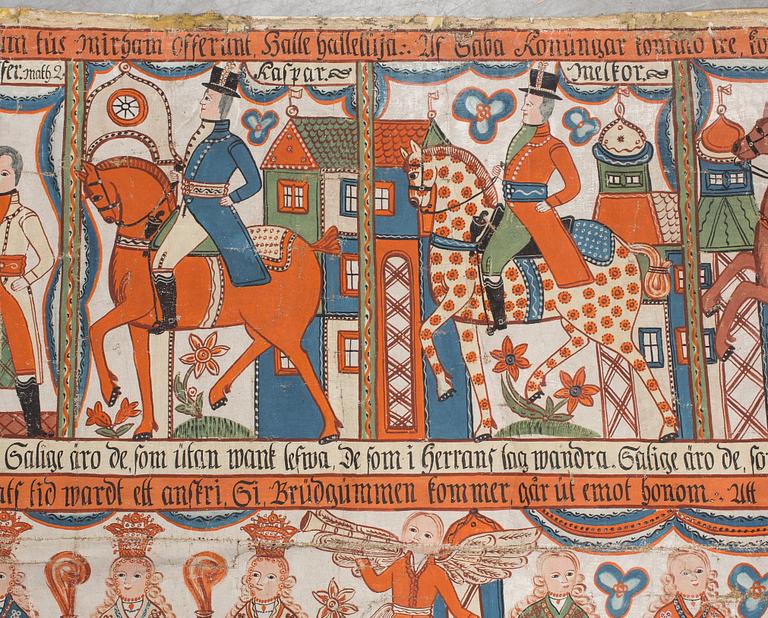 tus mirham offerunt, Halle halleluja. Af Saba Konungar kommo tre,
math 2 Kaspar. Melkor.
Salige äro de, som utan wank lefwa, De som i Herrans lag wandra. Salige äro de,
tid wardt ett anskri, Si, Brudgummen kommer, går ut emot honom. Att